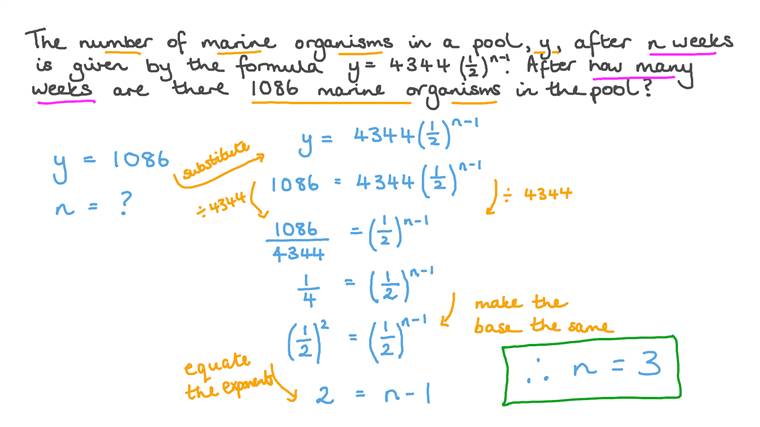 The number of marine organisms in a pool, y, after n weeks
is given by the formula y = 4344 (1/2)^(n-1). After how many
weeks are there 1086 marine organisms in the pool?
y = 1086
n = ?
substitute
y = 4344 (1/2)^(n-1)
1086 = 4344 (1/2)^(n-1)
÷4344
÷ 4344
1086/4344 = (1/2)^(n-1)
1/4 = (1/2)^(n-1)
(1/2)^2 = (1/2)^(n-1)
make the
base the same
equate
the exponents
2 = n - 1
∴ n = 3